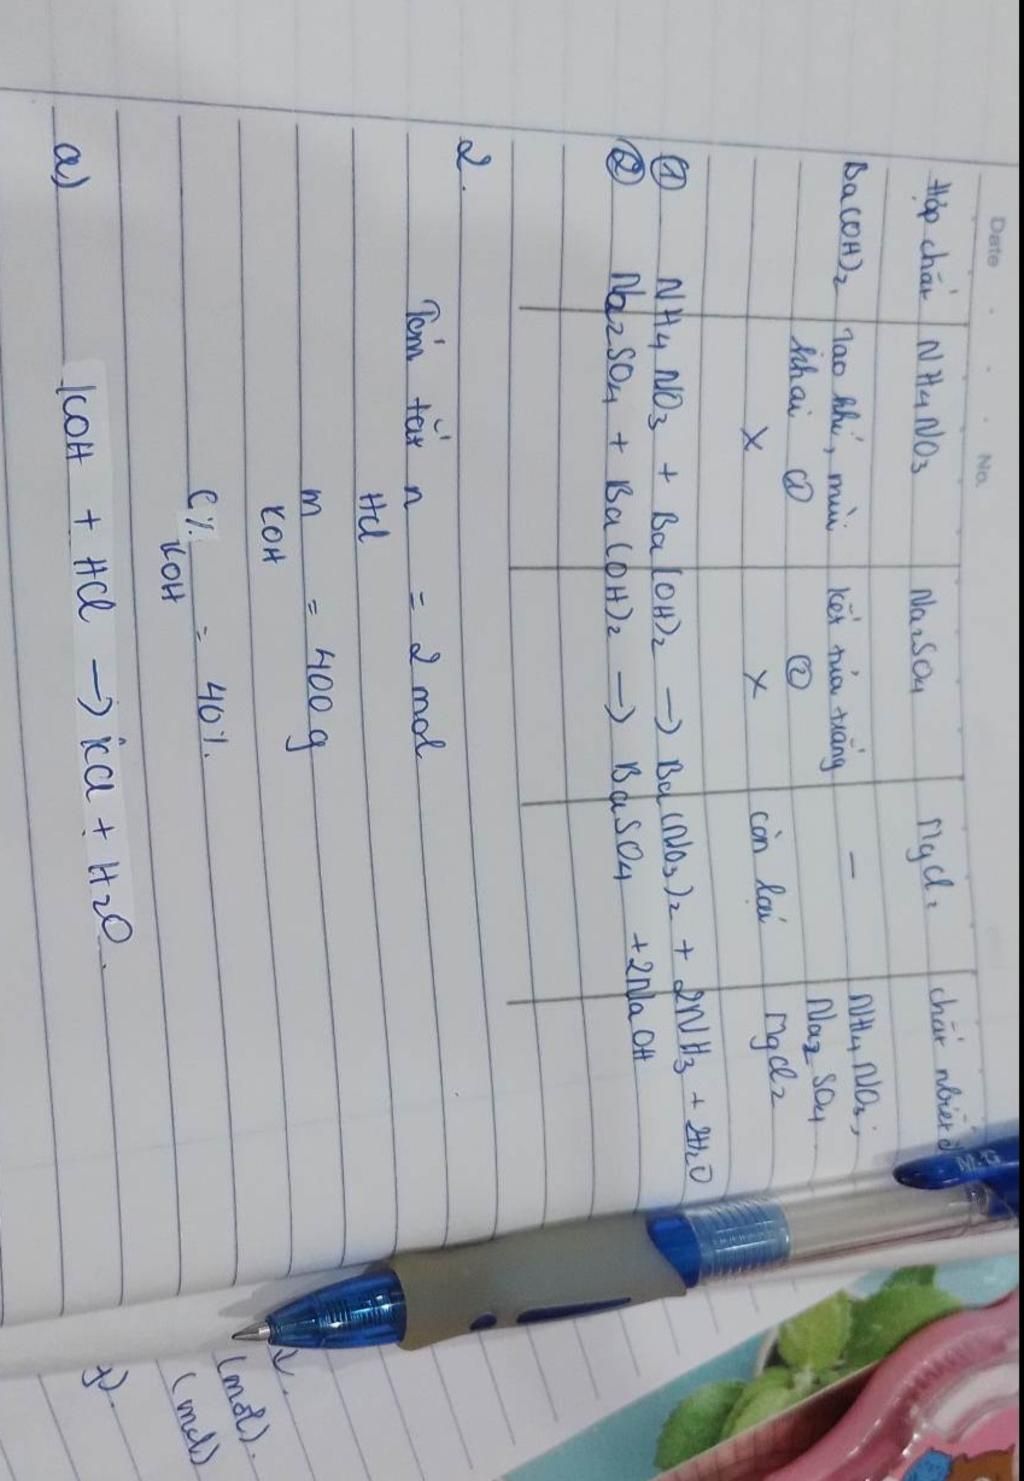 Date No.
Hợp chất NH4NO3 Na2SO4 MgCl2 chất nbiết đ
Ba(OH)2 Tạo khí, mùi kết tủa trắng - NH4NO3,
khai ① ② Na2SO4
x x còn lại MgCl2
① NH4NO3 + Ba(OH)2 → Ba(NO3)2 + 2NH3 + 2H2O
② Na2SO4 + Ba(OH)2 → BaSO4 + 2NaOH
2.
Tóm tắt n HCl = 2 mol
m KOH = 400 g
C% KOH = 40%.
a) KOH + HCl → KCl + H2O.
(mol).
(mol)
M.G